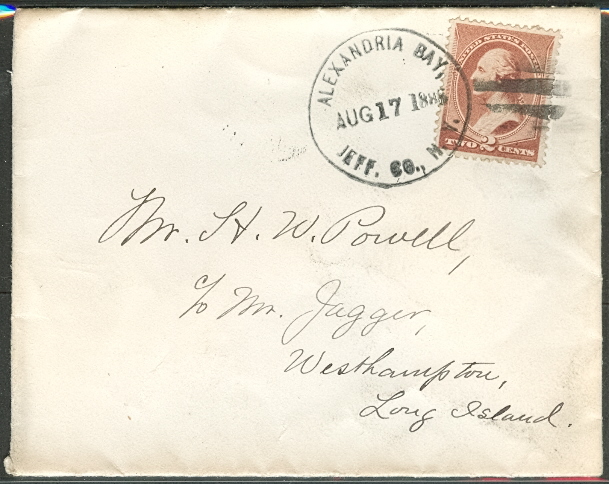 ALEXANDRIA BAY,
AUG 17 188
JEFF. CO., N.Y.
UNITED STATES
TWO 2 CENTS
Mr. H. W. Powell,
c/o Mr. Jagger,
Westhampton,
Long Island.